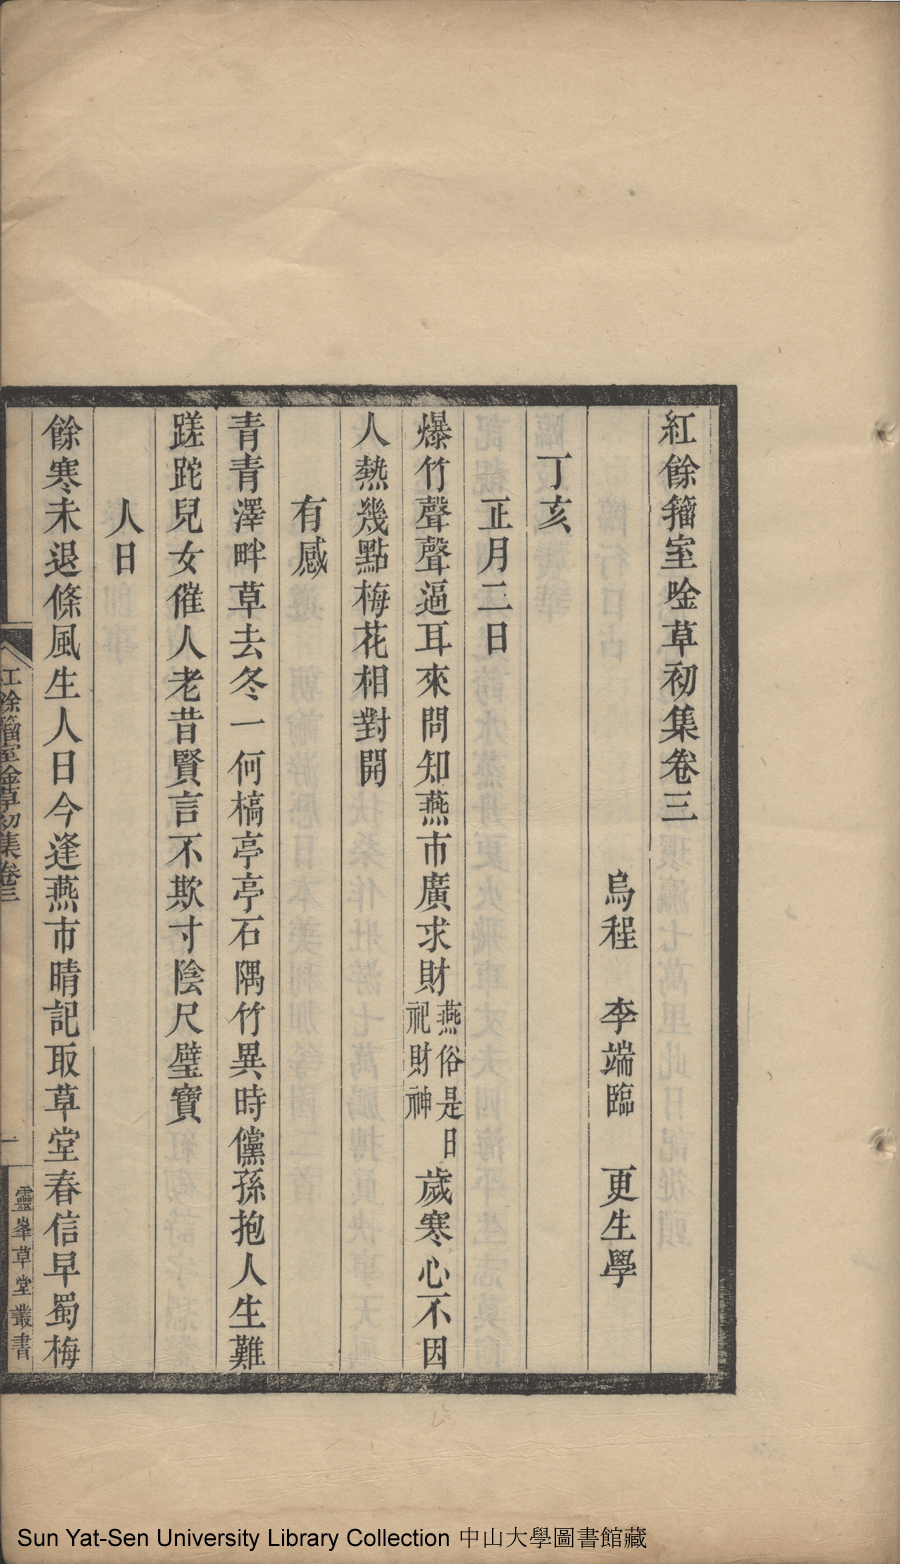 紅餘籀室唫草初集卷三
烏程 李端臨 更生學
丁亥
正月三日
爆竹聲聲逼耳來問知燕市廣求財燕俗是日祀財神歲寒心不因
人熱幾點梅花相對開
有感
青青澤畔草去冬一何槁亭亭石隅竹異時儻孫抱人生難
蹉跎兒女催人老昔賢言不欺寸陰尺璧寶
人日
餘寒未退條風生人日今逢燕市晴記取草堂春信早蜀梅
紅餘籀室唫草初集卷三
一
靈峯草堂叢書
Sun Yat-Sen University Library Collection 中山大學圖書館藏